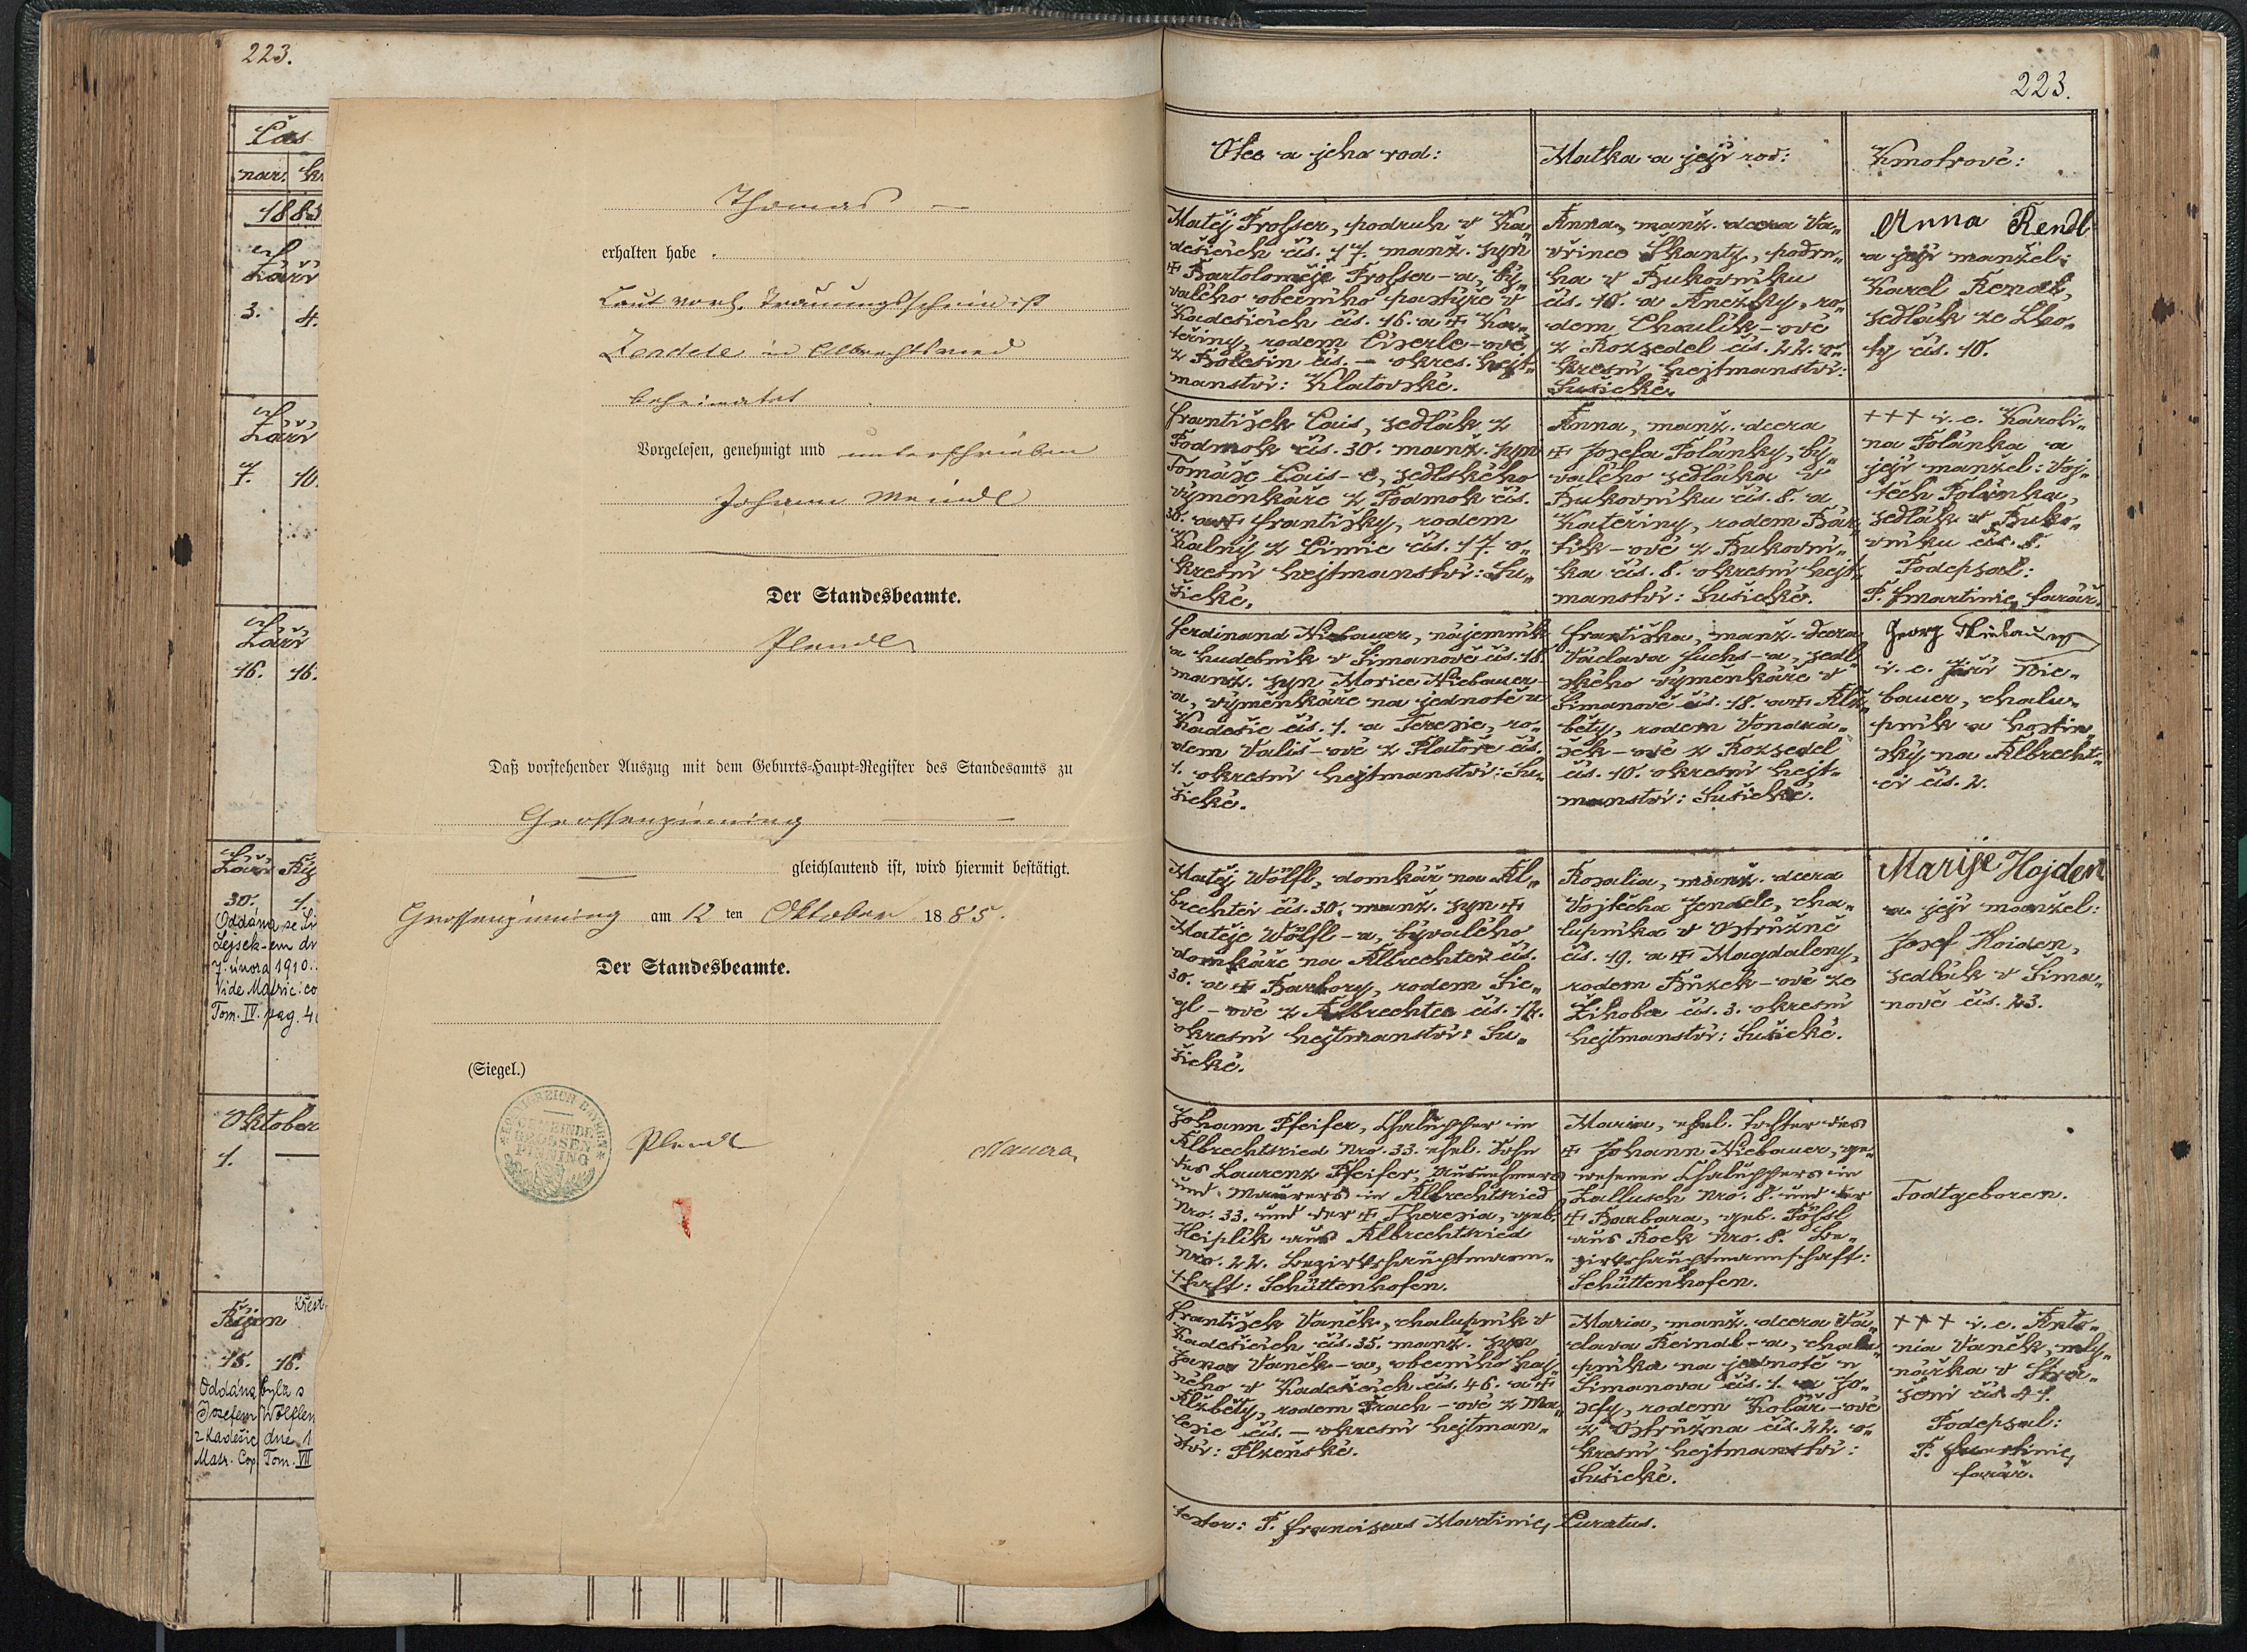 223.
Čas
nar.
1885
Září
3. 4.
Září
7. 10.
Září
16. 16.
Září Říj
30. 1.
Oddána se
Lejsek-em
7. února 1910.
Vide Matric:
Tom. IV. pag.
Oktober
1. —
Říjen křest.
15. 16.
Oddána byla s
Josefem Wölflem
z Kadešic dne 1
Matr. Cop. Tom. VII
Thomas —
erhalten habe.
Laut vorl. Trauungsschein ist
in Albrechtsried
beheimatet
Vorgelesen, genehmigt und unterschrieben
Johann Meindl
Der Standesbeamte.
Plendl
Daß vorstehender Auszug mit dem Geburts-Haupt-Register des Standesamts zu
Grossenpinning
gleichlautend ist, wird hiermit bestätigt.
Grossenpinning am 12 ten Oktober 1885.
Der Standesbeamte.
(Siegel.)
KÖNIGREICH BAYERN
GEMEINDE
GROSSEN
PINNING
Plendl
223.
Otec a jeho rod: Matka a její rod: Kmotrové:
Matěj Prosser, podruh v Ka„
dešicích čís. 17. manž. syn
† Bartoloměje Prosser-a, bý„
valého obecního pastýře v
Kadešicích čís. 16. a † Ka„
teřiny, rodem
z Bolešin čís. — okres. hejt„
manství: Klatovské.
Anna, manž. dcera Va„
vřince Škanty, podru„
ha v Bukovníku
čís. 10. a Anežky, ro„
dem Chaulík-ové
z Rozsedel čís. 22. o„
kresní hejtmanství:
Sušické.
Anna Rendl
a její manžel:
Karel Rendl,
sedlák ze Lho„
ty čís. 10.
František Cais, sedlák z
Podmok čís. 30. manž. syn
Tomáše Cais-e, sedlského
výměnkáře z Podmok čís.
30. a † Františky, rodem
Kalný z Zimic čís. 17. o„
kresní hejtmanství: Su„
šické.
Anna, manž. dcera
† Josefa Polánky, bý„
valého sedláka v
Bukovníku čís. 8. a
Kateřiny, rodem Bár„
tík-ové z Bukovní„
ka čís. 8. okresní hejt„
manství: Sušické.
+++ i. e. Karoli„
na Polánka a
její manžel: Voj„
těch Polánka,
sedlák v Buko„
vníku čís. 8.
Podepsal:
P. F. Martinic, farář.
Ferdinand Niebauer, nájemník
a hudebník v Šimanově čís. 18.
manž. syn Morice Niebauer-
a, výměnkáře na jednotě u
Kadešic čís. 1. a Terezie, ro„
dem Vališ-ové z Platoře čís.
1. okresní hejtmanství: Su„
šické.
Františka, manž. dcera
Václava Fuchs-a, sedl„
ského výměnkáře v
Šimanově čís. 18. a † Alž„
běty, rodem Vondrá„
šek-ové z Rozsedel
čís. 10. okresní hejt„
manství: Sušické.
Georg Niebauer
i. e. Jiří Nie„
bauer, chalu„
pník a hostin„
ský na Albrecht„
ci čís. 2.
Matěj Wölfl, domkář na Al„
brechtci čís. 30. manž. syn †
Matěje Wölfl-a, bývalého
domkáře na Albrechtci čís.
30. a † Barbory, rodem Sie„
gl-ové z Albrechtce čís. 12.
okresní hejtmanství: Su„
šické.
Rosalia, manž. dcera
Vojtěcha Jandele, cha„
lupníka v Ostružně
čís. 19. a † Magdaleny,
rodem Bůzek-ové ze
Žikova čís. 3. okresní
hejtmanství: Sušické.
Marije Hojden
a její manžel:
Josef Hoiden,
sedlák v Šima„
nově čís. 23.
Johann Pfeifer, Chaluppner in
Albrechtsried Nro. 33. ehel. Sohn
des Laurenz Pfeifer, Ausnehmers
und Maurers in Albrechtsried
Nro. 33. und der † Theresia, geb.
Heiplik aus Albrechtsried
Nro. 22. Bezirkshauptmann„
schaft: Schüttenhofen.
Maria, ehel. Tochter des
† Johann Niebauer, ge„
wesenen Chaluppners in
Zallusch Nro. 8. und der
† Barbara, geb. Pössl
aus Rock Nro. 8. Be„
zirkshauptmannschaft:
Schüttenhofen.
Todtgeboren.
František Vaněk, chalupník v
Kadešicích čís. 35. manž. syn
Jana Vaněk-a, obecního haj„
ného v Kadešicích čís. 46. a †
Alžběty, rodem Prach-ové z Ma„
lesic čís. — okresní hejtman„
ství: Plzeňské.
Maria, manž. dcera Vá„
clava Reindl-a, chalu„
pníka na jednotě u
Šimanova čís. 1. a Jo„
sefy, rodem Kolář-ové
z Ostružna čís. 22. o„
kresní hejtmanství:
Sušické.
+++ i. e. Anto„
nia Vaněk, mly„
nářka v Stra„
šeni čís. 41.
Podepsal:
P. F. Martinic,
farář.
P. Franciscus Martinic, Curatus.